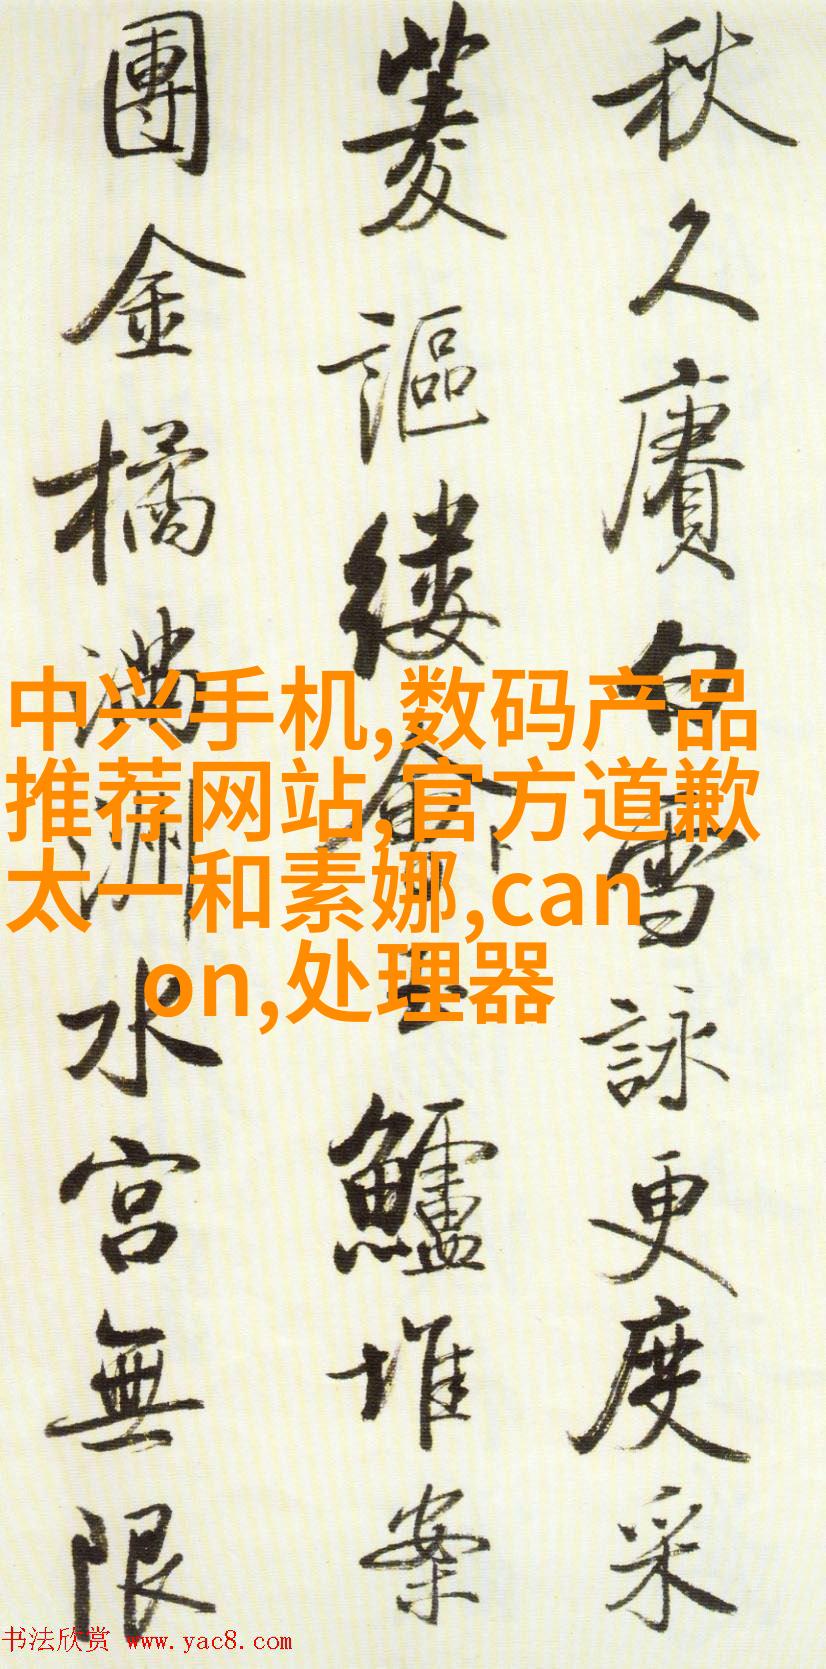 秋久賡白雪詠更度采
菱謳縷會玉鱸堆案
團金橘滿洲水宮無限
中兴手机,数码产品
推荐网站,官方道歉
太一和素娜,can
on,处理器
书法欣赏 www.yac8.com